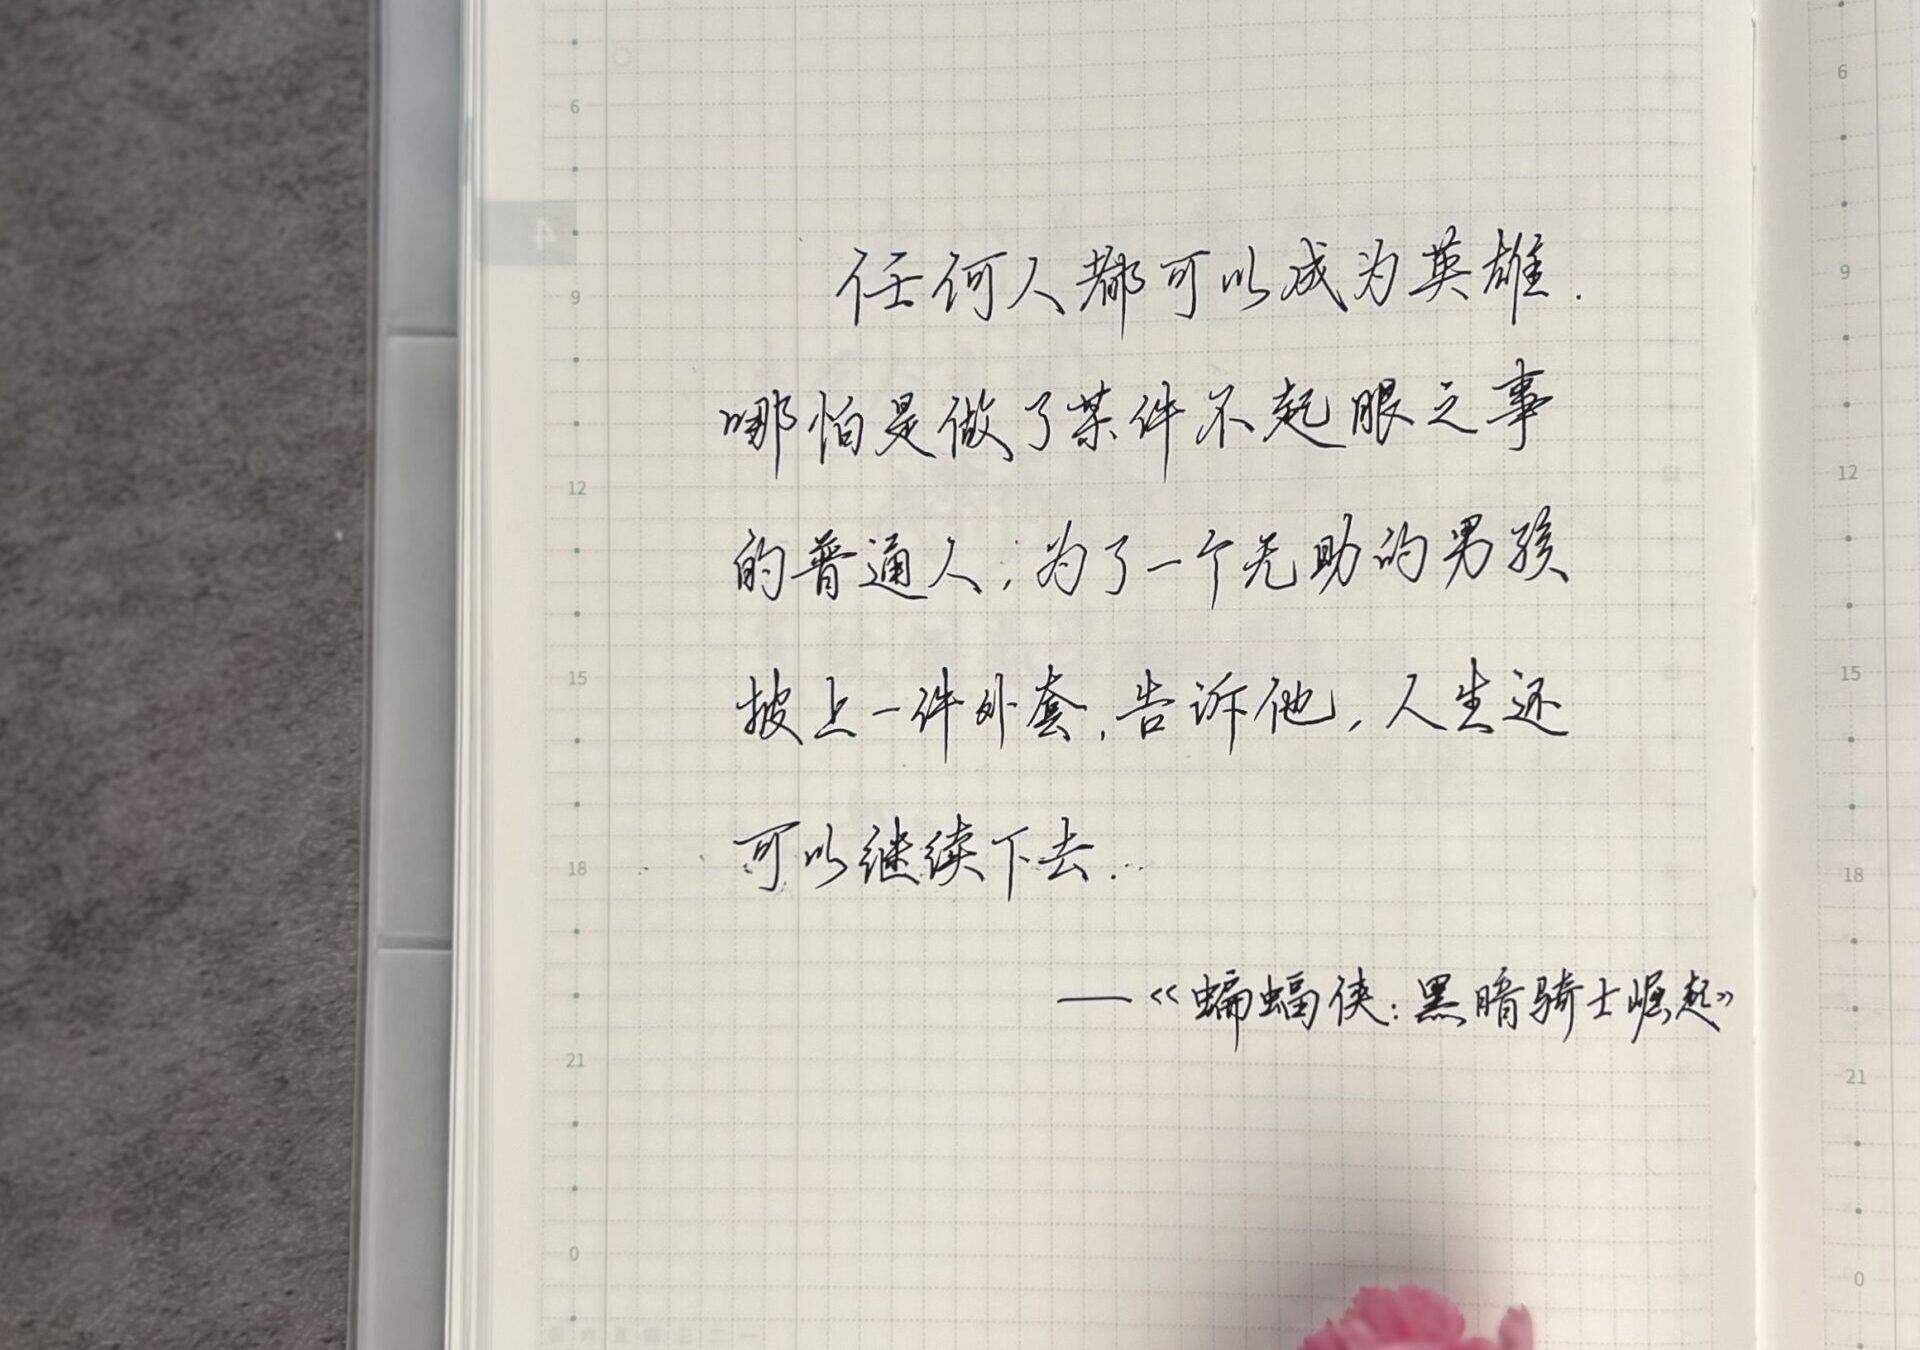 任何人都可以成为英雄.
哪怕是做了某件不起眼之事
的普通人,为了一个无助的男孩
披上一件外套,告诉他,人生还
可以继续下去.
——《蝙蝠侠:黑暗骑士崛起》
4
6
9
12
15
18
21
0
6
9
12
15
18
21
0